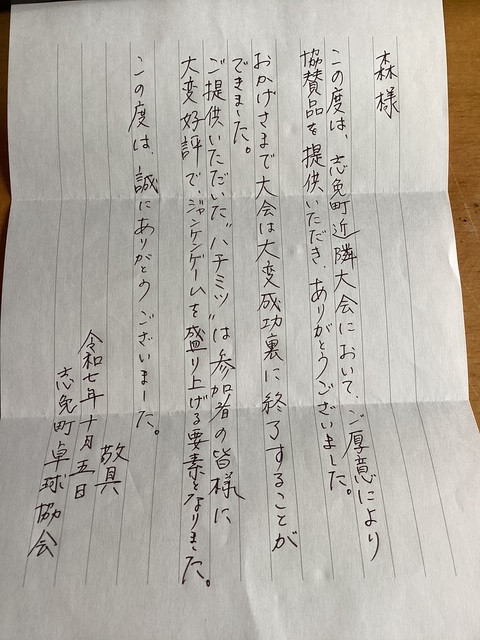 森様
この度は、志免町近隣大会において、ご厚意により
協賛品を提供いただき、ありがとうございました。
おかげさまで大会は大変成功裏に終了することが
できました。
ご提供いただいた"ハチミツ"は参加者の皆様に
大変好評で、ジャンケンゲームを盛り上げる要素となりました。
この度は、誠にありがとうございました。
敬具
令和七年十月五日
志免町卓球協会